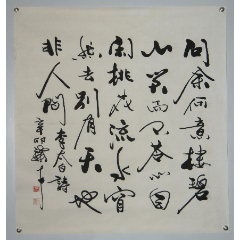 问余何意栖碧
山笑而不答心自
闲桃花流水窅
然去别有天地
非人间 李太白诗